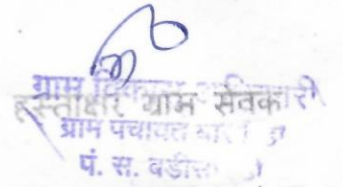 ग्राम विकास अधिकारी
हस्ताक्षर ग्राम सेवक
ग्राम पंचायत
पं. स.